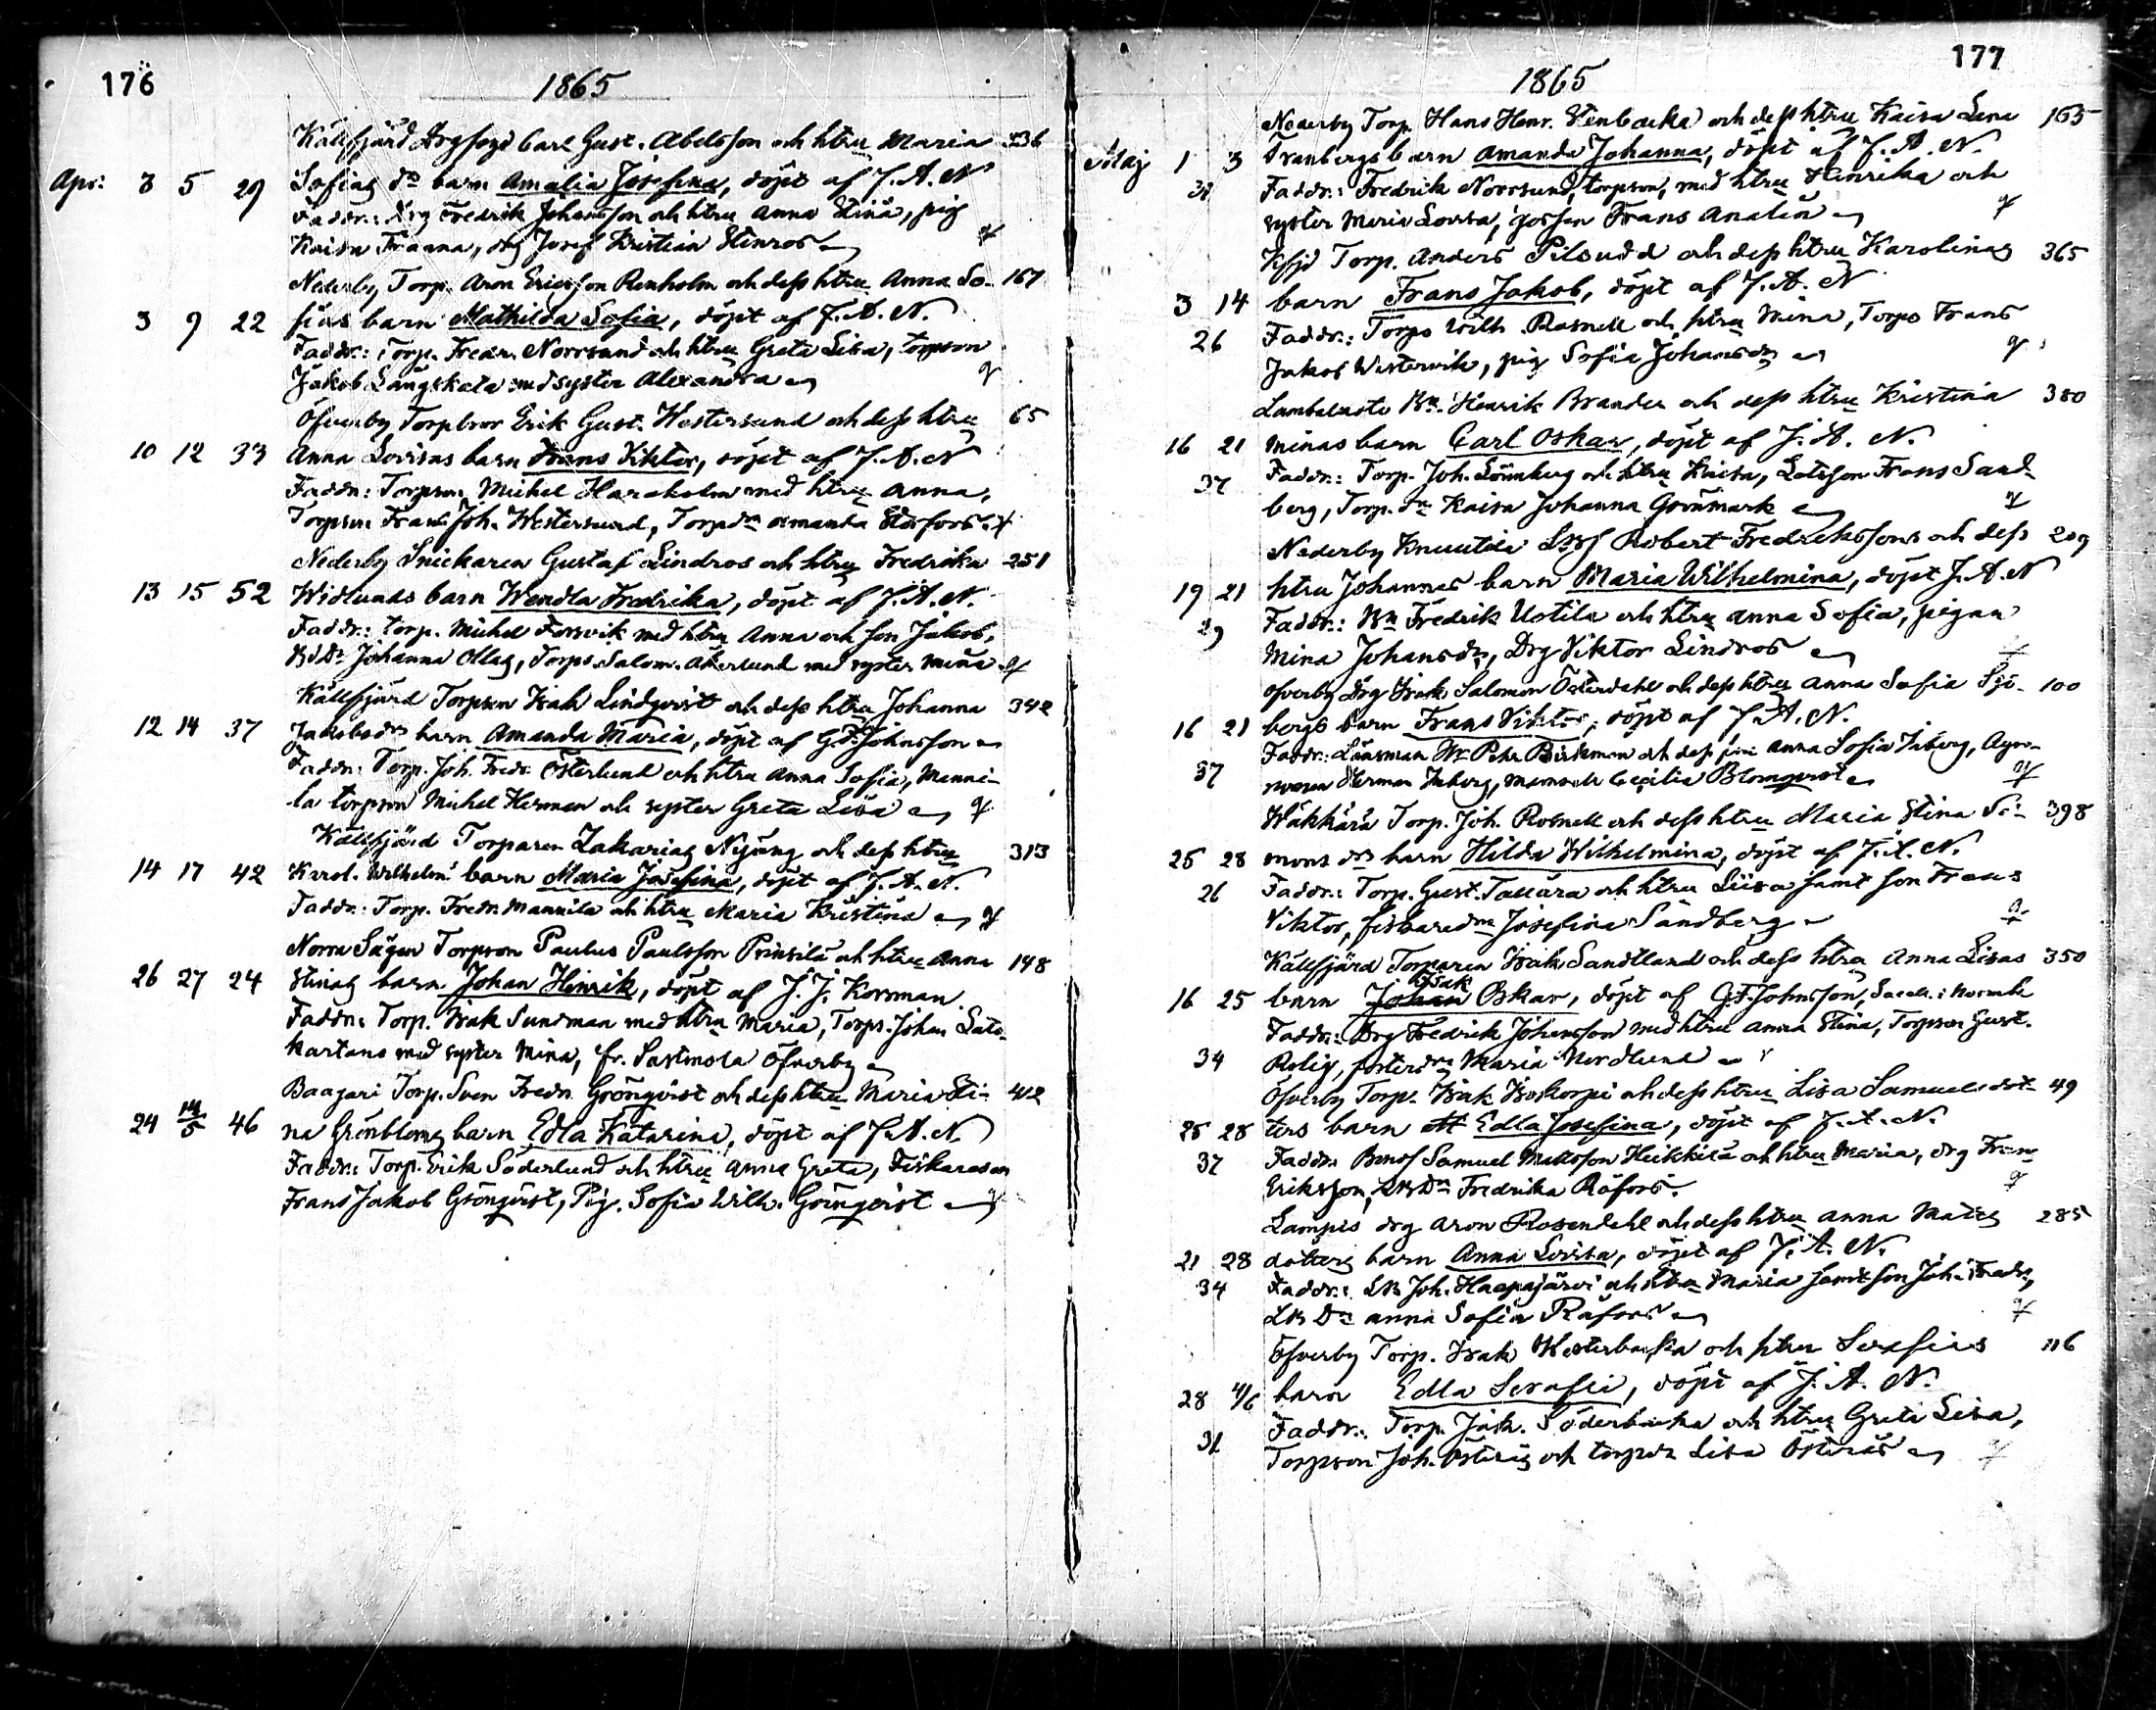 176
1865
Källfjärd Drgfogd Carl Gust. Abelsson och htru Maria 336
Apr: 3 5 29 Sofias dr barn Amalia Josefina, döpt af J. A. N
Faddr.: Drg Fredrik Johansson och htru Anna Stina, pig
Kaisa Fraana, drg Josef Kristian Stenros
Nederby Torp. Aron Ericsson Renholm och dess htru Anna So- 167
3 9 22 fias barn Mathilda Sofia, döpt af J. A. N.
Faddr.: Torp. Fredr. Norrsund och htru Greta Lisa, torpson
Jakob Långskata med syster Alexandra
Öfverby Torpbror Erik Gust. Westersund och dess htru 65
10 12 33 Anna Lovisas barn Frans Viktor, döpt af J. A. N
Faddr.: Torpson Michel Hareholm med htru Anna,
Torpson Frans Joh. Westersund, Torpdr Amanda Storfors.
Nederby Snickaren Gustaf Lindros och htru Fredrika 251
13 15 52 Widlunds barn Wendla Fredrika, döpt af J. A. N.
Faddr.: torp. Michel Forsvik med htru Anna och son Jakob,
Johanna Ollas, Torps. Salom. Åkerlund med syster Mina
Källfjärd Torpson Isak Lindqvist och dess htru Johanna 342
12 14 37 Jakobsdrs barn Amanda Maria, döpt af G. F. Johnsson
Faddr.: Torp. Joh. Fredr. Österlund och htru Anna Sofia, Manni-
la torpson Michel Herman och syster Greta Lisa
Källfjärd Torparen Zakarias Nyäng och dess htru 313
14 17 42 Karol. Wilhelm. barn Maria Josefina, döpt af J. A. N.
Faddr.: Torp. Fredr. Mannila och htru Maria Kristina
Norra Sägen Torpson Paulus Paulsson Prinsilä och htru Anna 148
26 27 24 Stinas barn Johan Hinrik, döpt af J. J. Korsman
Faddr.: Torp. Isak Sundman med htru Maria, Torps. Johan Lato-
kartano med syster Mina, fr. Sastmola Öfverby
Baagari Torp. Sven Fredr. Grönqvist och dess htru Maria Sti- 412
24 14/5 46 na Grönbloms barn Edla Katarina, döpt af J. A. N
Faddr.: Torp. Erik Söderlund och htru Anna Greta, Fiskareson
Frans Jakob Grönqvist, Pig. Sofia Wilh. Grönqvist
177
1865
Nederby Torp. Hans Henr. Stenbacka och dess htru Kaisa Lena 165
Maj 1 3 Tranbergs barn Amanda Johanna, döpt af J. A. N.
31 Faddr.: Fredrik Norrsund, torpson, med htru Henrika och
syster Maria Lovisa, gossen Frans Analin
Kfjd Torp. Anders Pilsudd och dess htru Karolinas 365
3 14 barn Frans Jakob, döpt af J. A. N
26 Faddr.: Torps Wilh. Rosnell och htru Mina, Torps Frans
Jakob Westervik, pig Sofia Johansdr
Lambaluoto Bn. Henrik Brander och dess htru Kristina 380
16 21 Minas barn Carl Oskar, döpt af J. A. N.
37 Faddr.: Torp. Joh. Lönnberg och htru Kaisa, Lotsson Frans Sand-
berg, Torp. dr Kaisa Johanna Grönmark
Nederby Knuutila Robert Fredrikssons och dess 209
19 21 htru Johannas barn Maria Wilhelmina, döpt J. A. N
29 Faddr.: Bn Fredrik Uotila och htru Anna Sofia, pigan
Mina Johansdr, Drg Viktor Lindros
Öfverby Drg Isak Salomon Österdahl och dess htru Anna Sofia Sjö- 100
16 21 bergs barn Frans Viktor, döpt af J. A. N.
37 Faddr.: Länsman Petr. Birkman och dess fru Anna Sofia Inberg, Agro-
nomen Herman Inberg, mamsell Cecilia Blomqvist
Wäkkärä Torp. Joh. Rosnell och dess htru Maria Stina Si- 398
25 28 mons drs barn Hilda Wilhelmina, döpt af J. A. N.
26 Faddr.: Torp. Gust. Tallära och htru Liisa samt son Frans
Viktor, fiskaredr Josefina Sandberg
Källfjärd Torparen Isak Sandlund och dess htru Anna Lisas 350
Isak
16 25 barn Johan Oskar, döpt af G. F. Johnsson,
Faddr.: Drg Fredrik Johansson med htru Anna Stina, Torpson Gust.
34 Rolig, fosterdr Maria Nordlund
Öfverby Torp. Isak Isokorpi och dess htru Lisa Samuels dot- 49
25 28 ters barn Edla Josefina, döpt af J. A. N.
37 Faddr. Samuel Mattsson Heikkilä och htru Maria, drg Frans
Eriksson, Fredrika Råfors.
Lampis drg Aron Rosendahl och dess htru Anna Matts 285
21 28 dotters barn Anna Lovisa, döpt af J. A. N.
34 Faddr.: Joh. Haapajärvi och htru Maria samt son Joh. Fredr.,
Anna Sofia Råfors
Öfverby Torp. Isak Westerbacka och htru Serafias 116
28 4/6 barn Edla Serafii, döpt af J. A. N.
31 Faddr.: Torp. Jak. Söderbacka och htru Greta Lisa,
Torpson Joh. Österås och torpdr Lisa Österås